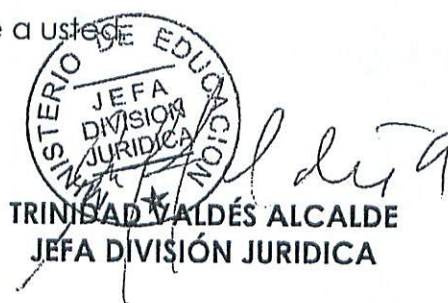 e a usted,
MINISTERIO DE EDUCACION
JEFA
DIVISION
JURIDICA
TRINIDAD VALDÉS ALCALDE
JEFA DIVISIÓN JURIDICA